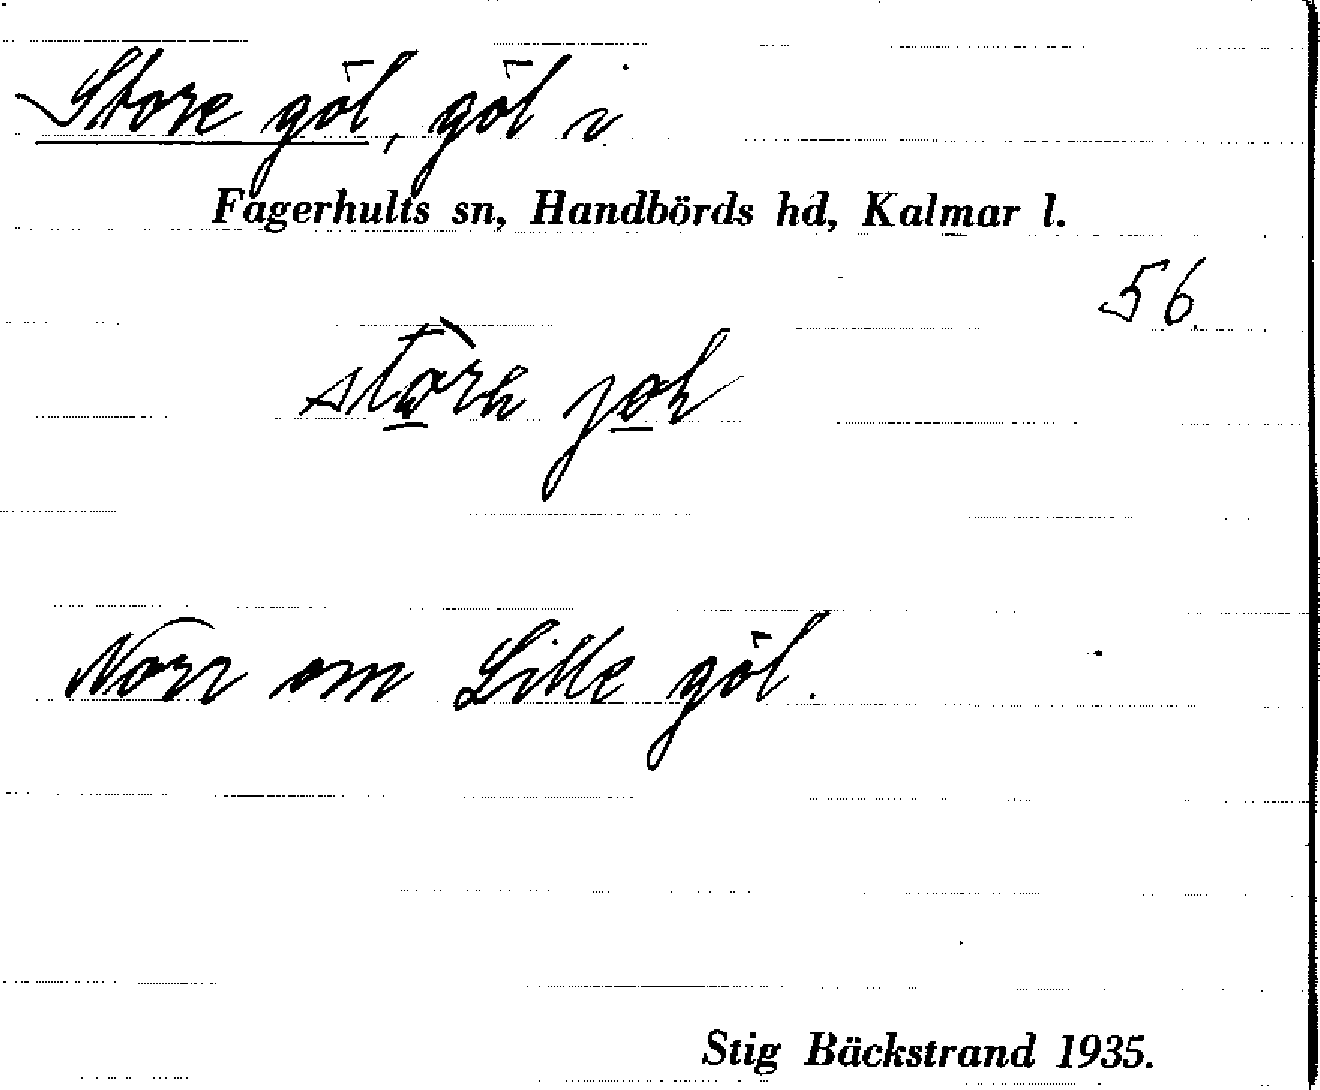 Store göl, göl i
Fagerhults sn, Handbörds hd, Kalmar l.
56.
Norr om Lille göl.
Stig Bäckstrand 1935.